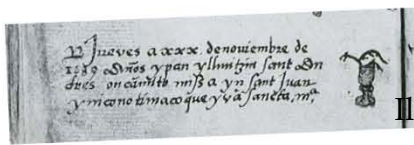 Jueves a xxx de noviembre de
años ypan ylhuitzin sant An
dres oncan mito missa yn sant Juan
yniconotimacoque yn sancta mª
Il